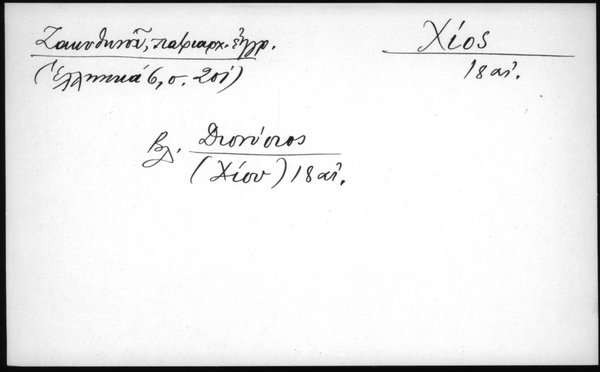 Ζακυθηνοῦ, πατριαρχ. ἔγγρ.
(Ἑλληνικά 6, σ. 201)
Χίος
18 αἰ.
βλ. Διονύσιος
(Χίου) 18 αἰ.